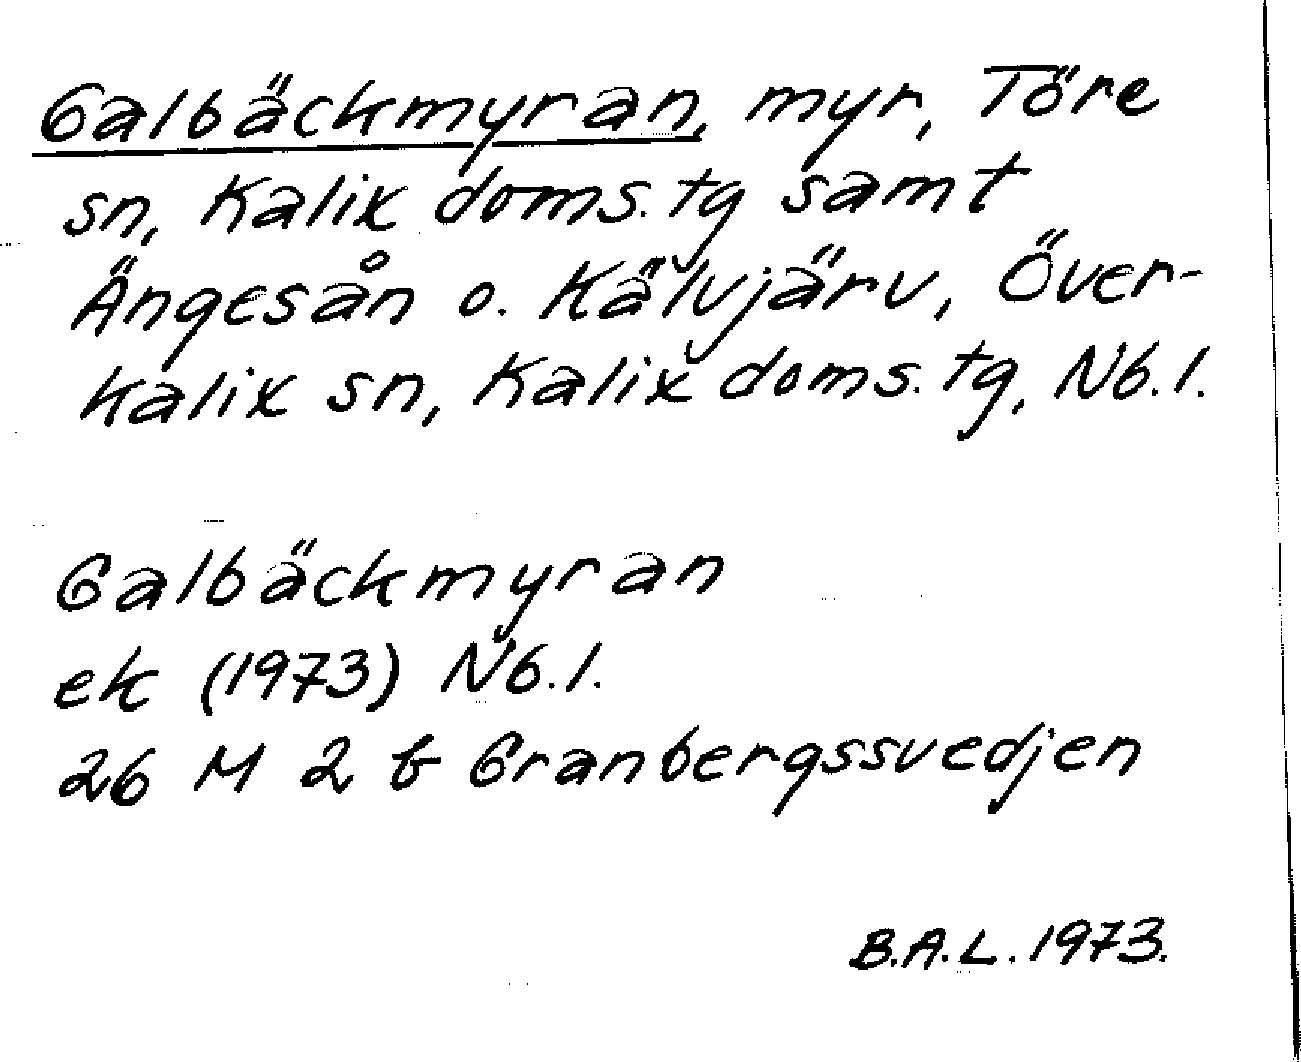 Galbäckmyran, myr, Töre
sn, Kalix doms.tg samt
Ängesån o. Kälvjärv, Över-
kalix sn, Kalix doms.tg, Nb.l.
Galbäckmyran
ek (1973) Nb.l.
26 M 2 b Granbergssvedjen
B.A.L. 1973.